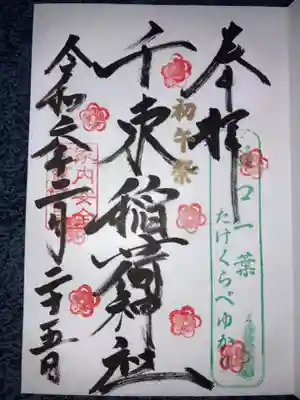 奉拝
口一葉
たけくらべゆか
初午祭
千束稲荷神社
家内安全
令和二年二月二十五日